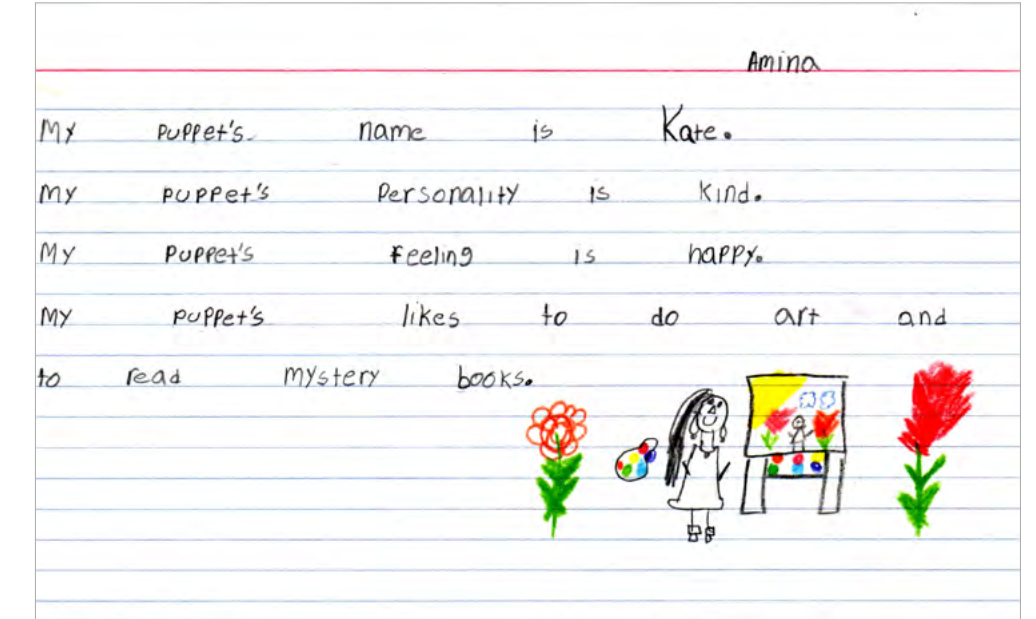 Amina
My puppet's name is Kate.
My puppet's Personality is kind.
My puppet's feeling is happy.
My puppet's likes to do art and
to read mystery books.